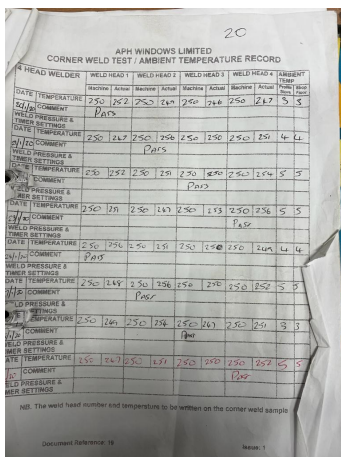 20
APH WINDOWS LIMITED
CORNER WELD TEST / AMBIENT TEMPERATURE RECORD
4 HEAD WELDER WELD HEAD 1 WELD HEAD 2 WELD HEAD 3 WELD HEAD 4 AMBIENT TEMP
Machine Actual Machine Actual Machine Actual Machine Actual Profile Store Shop Floor
DATE TEMPERATURE 250 252 250 247 250 246 250 247 3 3
COMMENT Pass
WELD PRESSURE &
TIMER SETTINGS
DATE TEMPERATURE 250 247 250 256 250 250 250 251 4 4
COMMENT Pass
WELD PRESSURE &
TIMER SETTINGS
DATE TEMPERATURE 250 252 250 251 250 250 250 254 5 5
COMMENT Pass
WELD PRESSURE &
TIMER SETTINGS
DATE TEMPERATURE 250 251 250 247 250 253 250 256 5 5
COMMENT Pass
WELD PRESSURE &
TIMER SETTINGS
DATE TEMPERATURE 250 256 250 251 250 250 250 249 4 4
COMMENT Pass
WELD PRESSURE &
TIMER SETTINGS
TEMPERATURE 250 248 250 256 250 250 250 252 5 5
COMMENT Pass
LD PRESSURE &
TEMPERATURE 250 249 250 254 250 247 250 251 3 3
COMMENT Pass
WELD PRESSURE &
TIMER SETTINGS
DATE TEMPERATURE 250 247 250 251 250 250 250 252 5 5
COMMENT Pass
WELD PRESSURE &
TIMER SETTINGS
NB. The weld head number and temperature to be written on the corner weld sample
Document Reference: 16 Issue: 1